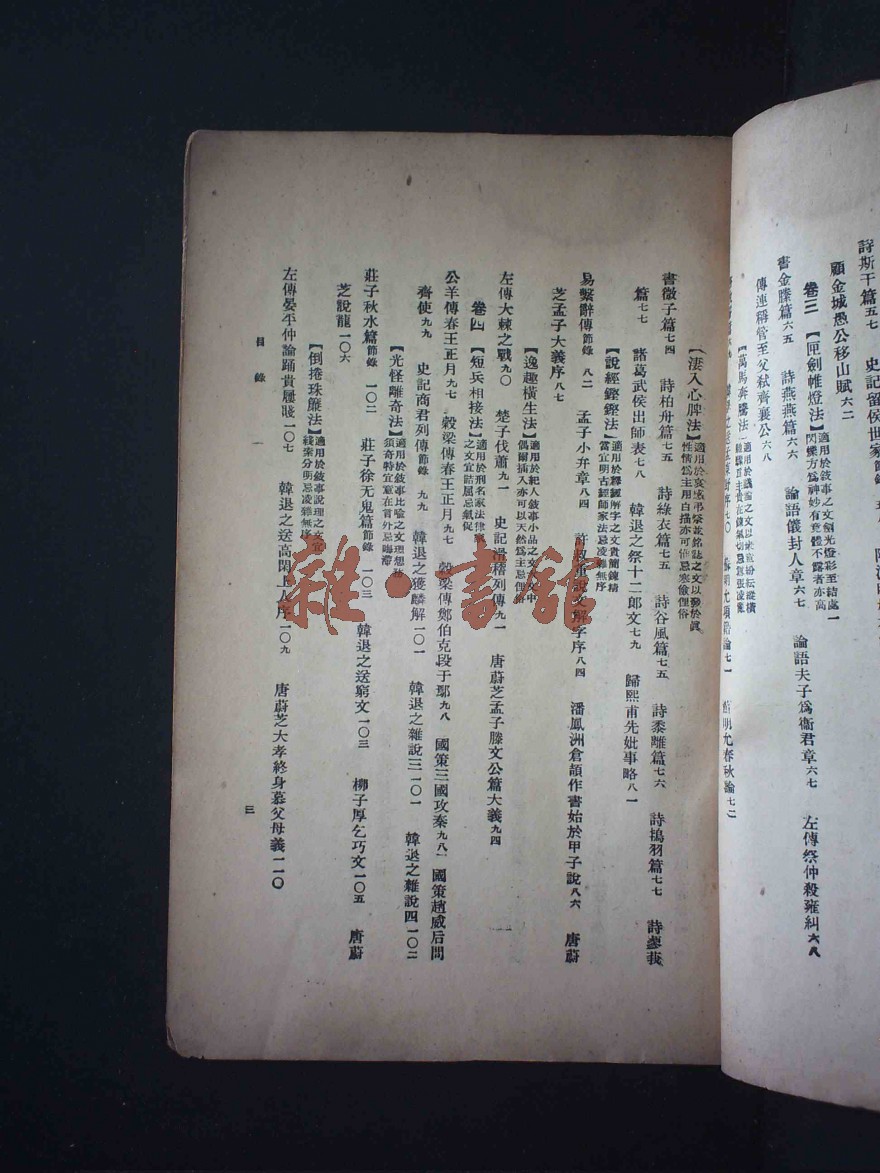 詩斯干篇五七　史記留侯世家節錄
顧金城愚公移山賦六二
卷三【匣劍帷燈法】適用於敘事之文劍光燈彩至結處一
閃爍方爲神妙有意體不露者亦高
書金縢篇六五　詩燕燕篇六六　論語儀封人章六七　論語夫子爲衞君章六七　左傳祭仲殺雍糾六八
傳連稱管至父弑齊襄公六八
【萬馬奔騰法】適用於議論之文以
論七一　蘇明允春秋論七二
【淒入心脾法】適用於哀感弔祭並銘誌之文以發於眞
性情爲主用白描亦可他忌寒儉俚俗
書微子篇七四　詩柏舟篇七五　詩綠衣篇七五　詩谷風篇七五　詩黍離篇七六　詩鴇羽篇七七　詩蓼莪
篇七七　諸葛武侯出師表七八　韓退之祭十二郎文七九　歸熙甫先妣事略八一
【說經鏗鏗法】適用於釋經解字之文貴簡鍊精
當宜明古經師家法忌凌雜無序
易繫辭傳節錄　八二　孟子小弁章八四　許叔重說文解字序八四　潘鳳洲倉頡作書始於甲子說八六　唐蔚
芝孟子大義序八七
【逸趣橫生法】適用於紀人敘事小品之文文中
偶爾插入亦可以天然爲主忌俚俗
左傳大棘之戰九〇　楚子伐蕭九一　史記滑稽列傳九一　唐蔚芝孟子滕文公篇大義九四
卷四【短兵相接法】適用於刑名家法律家
之文宜詰屈忌氣促
公羊傳春王正月九七　穀梁傳春王正月九七　穀梁傳鄭伯克段于鄢九八　國策三國攻秦九八　國策趙威后問
齊使九九　史記商君列傳節錄　九九　韓退之獲麟解一〇一　韓退之雜說三一〇一　韓退之雜說四一〇二
【光怪離奇法】適用於敘事比喻之文理想務
須奇特宜意在言外忌晦滯
莊子秋水篇節錄　一〇二　莊子徐无鬼篇節錄　一〇三　韓退之送窮文一〇三　柳子厚乞巧文一〇五　唐蔚
芝說龍一〇六
【倒捲珠簾法】適用於敘事說理之文宜
綫索分明忌凌雜無序
左傳晏平仲論踊貴屨賤一〇七　韓退之送高閑上人序一〇九　唐蔚芝大孝終身慕父母義一一〇
目錄　一
三
雜·書館